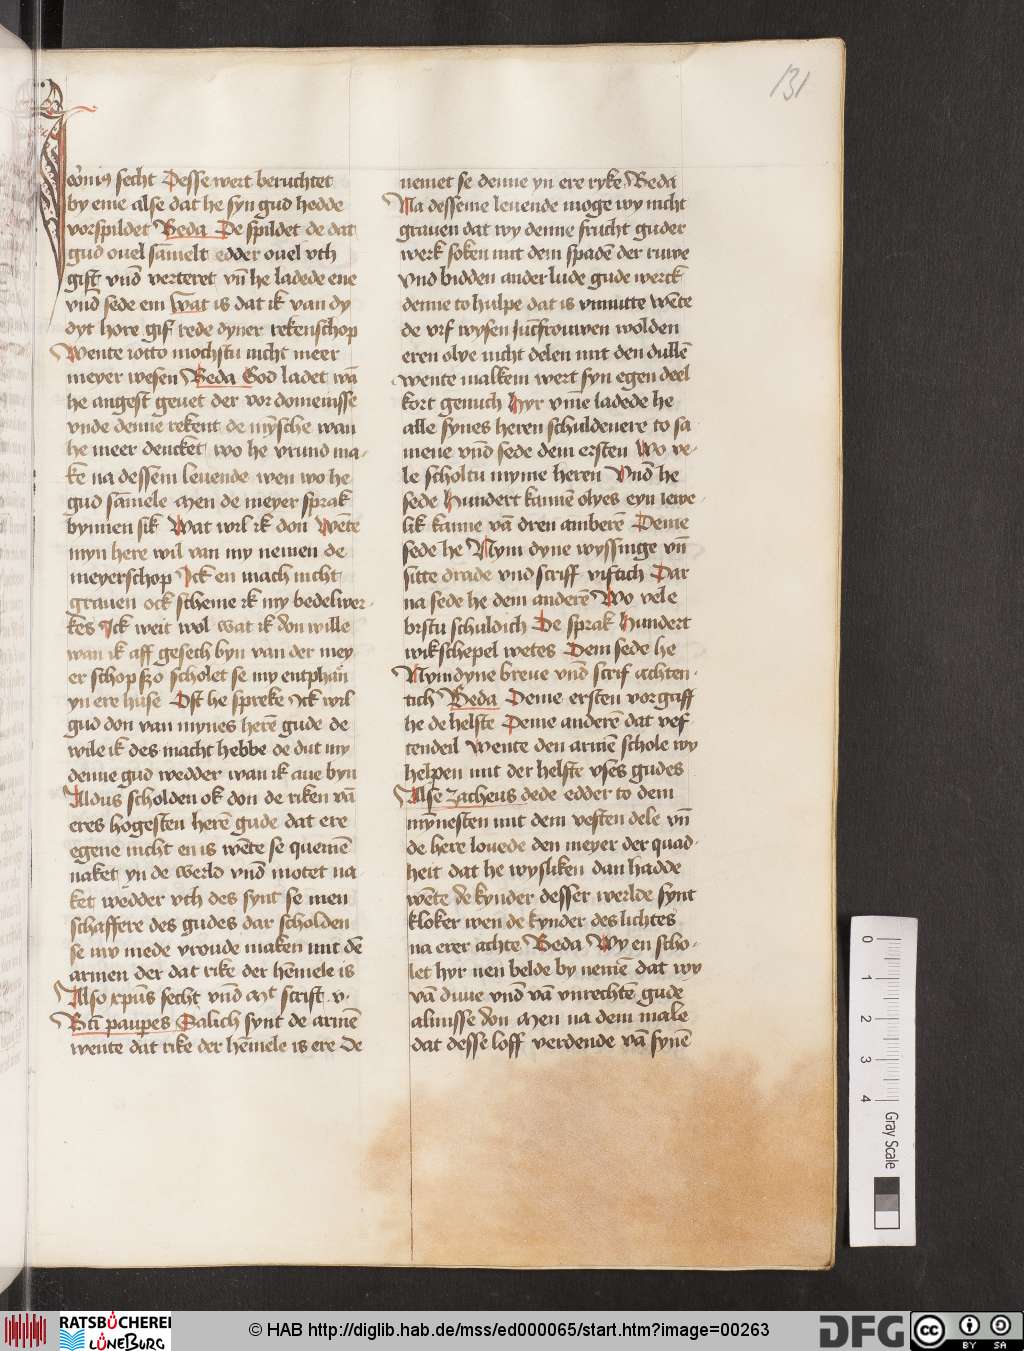 131
eōniꝰ secht Desse wert beruchtet
by eme alse dat he syn gud hedde
vorspildet Beda De spildet de dat
gud ouel sāmelt edder ouel vth
gift vnd̄ verteret vn̄ he ladede ene
vnd̄ sede em wat is dat ik van dy
dyt hore gif rede dyner rekenschop
Wente iotto mochstu nicht meer
meyer wesen Beda God ladet wā
he angest geuet der vordomenisse
vnde denne rekent de mȳsche wan
he meer dencket wo he vrund ma-
ke na dessem leuende wen wo he
gud sāmele Men de meyer sprak
bynnen sik Wat wil ik don Wēte
myn here wil van my nemen de
meyerschop Ick en mach nicht
grauen ock scheme ik my bedeliver-
kes Ick weit wol wat ik don wille
wan ik aff gesech byn van der mey
er schop szo scholet se my entphan
yn ere huse Oft he spreke Ick wil
gud don van mynes herē gude de
wile ik des macht hebbe de dut my
denne gud wedder wan ik aue byn
Aldus scholden ok don de riken vā
eres hogesten herē gude dat ere
egene nicht en is wēte se quemē
naket yn de werld vnd̄ motet na-
ket wedder vth des synt se men
schaffere des gudes dar scholden
se my mede vroude maken mit dē
armen der dat rike der hēmele is
Also xp̄us secht vnd̄ Mt scrift v.
Bti pauꝑes Salich synt de armē
wente dat rike der hēmele is ere De
nemet se denne yn ere ryke Beda
Na desseme leuende moge wy nicht
grauen dat wy denne frucht guder
werk soken mit dem spadē der ruwe
vnd bidden ander lude gude werck
denne to hulpe dat is vnnutte wēte
de vrf wysen jūcfrouwen wolden
eren olye nicht delen mit den dullē
wente malkem wert syn egen deel
kort genuch Hyr vm̄e ladede he
alle synes heren schuldenere to sa-
mene vnd̄ sede dem ersten Wo ve-
le scholtu myme heren Vnd̄ he
sede Hundert kannē olyes eyn iewe-
lik kanne vā dren amberē Deme
sede he Nym dyne wyssinge vn̄
sitte drade vnd scriff viftich Dar
na sede he dem anderē Wo vele
bistu schuldich De sprak Hundert
wikschepel wetes Dem sede he
Nym dyne breue vnd̄ scrif achten-
tich Beda Deme ersten vorgaff
he de helfte Deme anderē dat vef
tendeil Wente den armē schole wy
helpen mit der helfte vses gudes
Alse Zacheus dede edder to dem
mȳnesten mit dem vesten dele vn̄
de here louede den meyer der quad-
heit dat he wysliken dan hadde
wēte de kynder desser werlde synt
kloker wen de kynder des lichtes
na erer achte Beda Wy en scho-
let hyr nen belde by nemē dat wy
vā duue vnd̄ vā vnrechtē gude
almisse don Men na dem male
dat desse loff verdende vā synē
0
1
2
3
4
Gray Scale
RATSBÜCHEREI LÜNEBURG
© HAB http://diglib.hab.de/mss/ed000065/start.htm?image=00263
DFG
cc BY SA